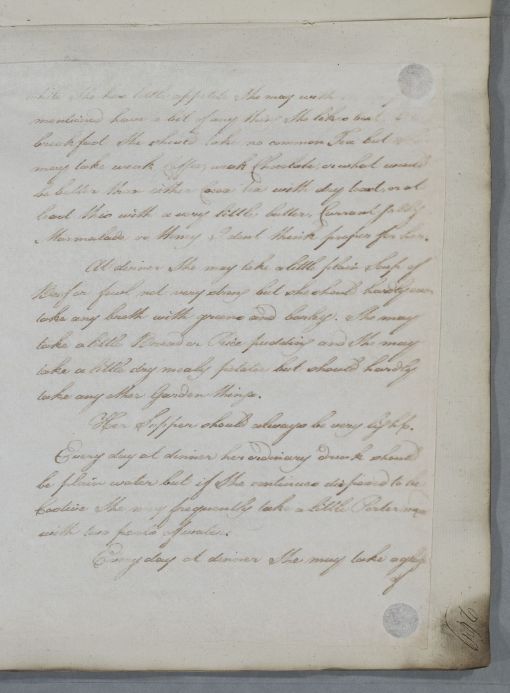 while She has little appetite She may with
mentioned have a bit of any thing She likes best.
breakfast She should take no common Tea but
may take weak Coffee, weak Chocolate, or what would
be better than either Cocoa Tea with dry toast, or at
least this with a very little butter, Currant Jelly
Marmalade or Honey I dont think proper for her.
At dinner She may take a little plain Soup of
Beef or fowl not very strong but she should hardly ever
take any broth with greens and barley. She may
take a little Bread or Rice pudding and She may
take a little dry mealy potatoe but should hardly
take any other Garden things.
Her Supper should always be very light.
Every day at dinner her ordinary drink should
be plain water but if She continues disposed to be
Costive She may frequently take a little Porter
with two parts of water.
Every day at dinner She may take a glass
of